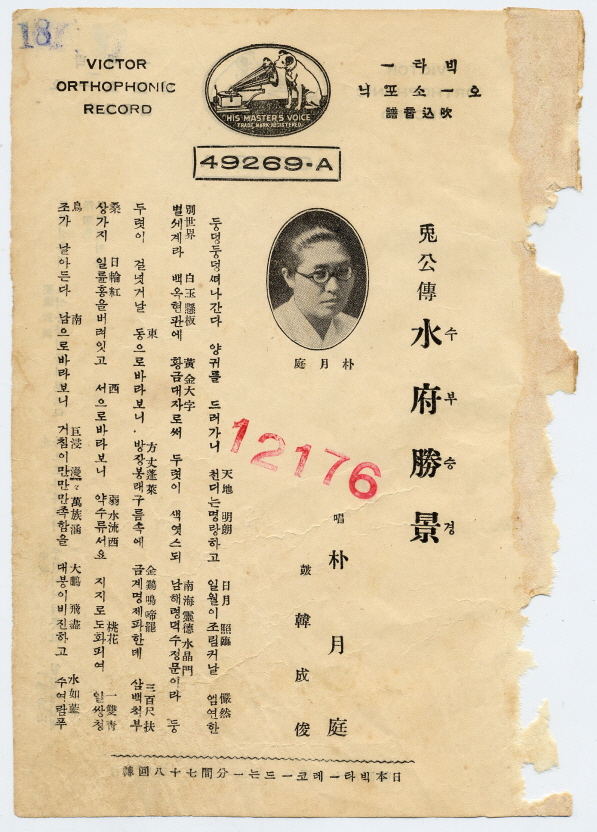 181
VICTOR
ORTHOPHONIC
RECORD
"HIS MASTER'S VOICE"
TRADE MARK REGISTERED
빅타ー
오ー소포닉
吹込音譜
49269-A
兎公傳
水府勝景
수부승경
唱 朴月庭
鼓 韓成俊
朴月庭
12176
天地 明朗 日月 照臨 儼然
둥덩둥덩 나간다 양귀를 드러가니 천디는명랑하고 일월이조림커날 엄연한
別世界 白玉懸板 黃金大字 南海靈德水晶門
별세계라 백옥현판에 황금대자로써 두렷이 색엿스되 남해령덕수정문이라 둥
東 方丈蓬萊 金鷄鳴啼罷 三百尺扶
두렷이 걸넛거날 동으로바라보니 방장봉래구름속에 금계명제파한데 삼백척부
桑 日輪紅 西 弱水流西 桃花 一雙靑
상가지 일륜홍을버려잇고 서으로바라보니 약수류서요 지지로도화띄여 일쌍청
鳥 南 巨浸 漫々萬族涵 大鵬 飛盡 水如藍
조가 날아든다 남으로바라보니 거침이만만만족함을 대붕이비진하고 수여람푸
日本빅타ー레코ー드는一分間七十八回轉